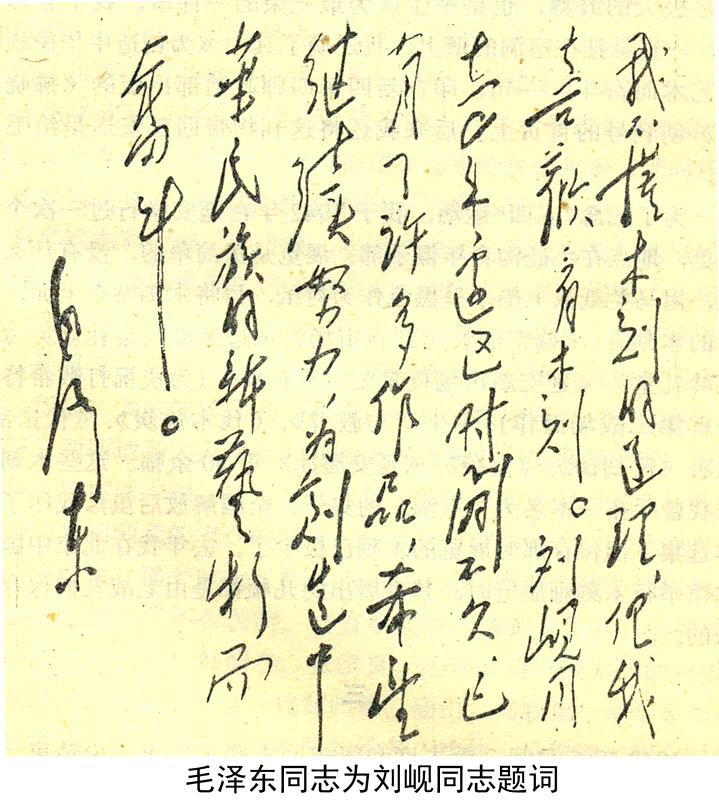 我不懂木刻的道理,但我
喜歡看木刻。刘岘同
志来边区时间不久,已
有了许多作品,希望
继续努力,为创造中
華民族的新藝術而
奋斗。
毛泽东
毛泽东同志为刘岘同志题词